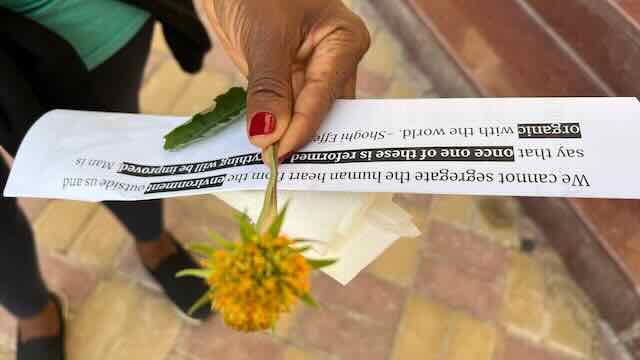 We cannot segregate the human heart from the environment outside us and
say that once one of these is reformed everything will be improved. Man is
organic with the world. - Shoghi